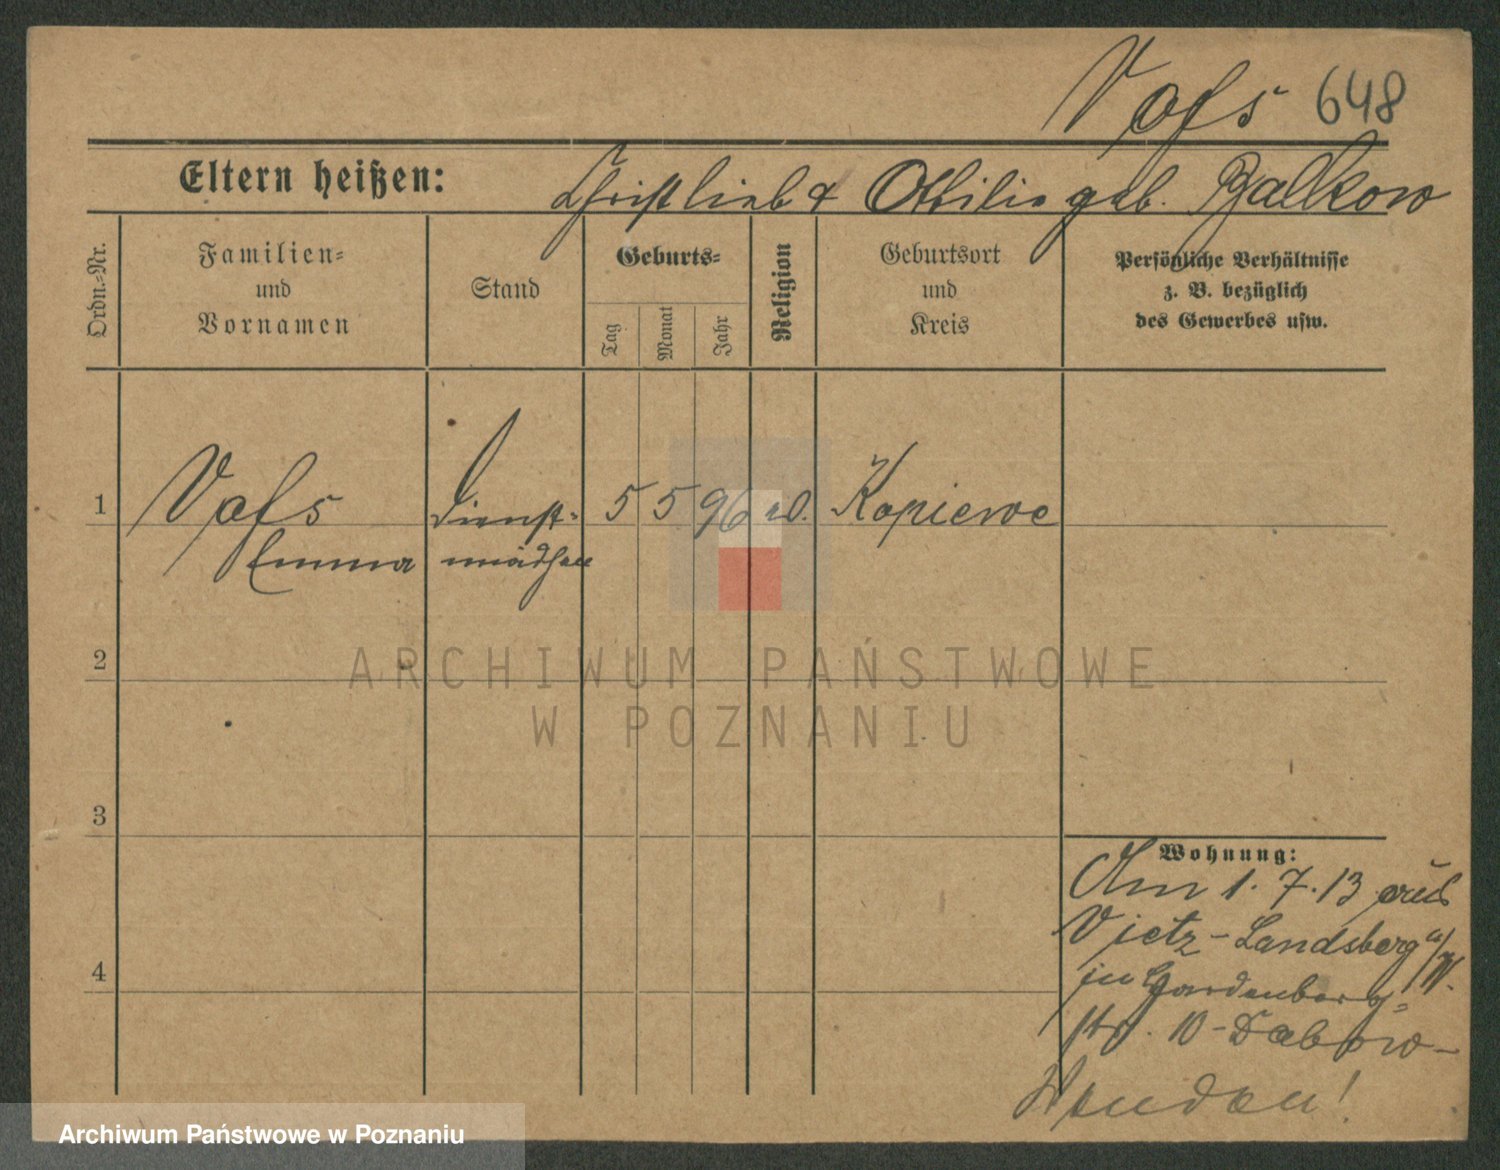 Voſs 648
Eltern heißen: Christlieb & Ottilie geb. Balkow
Ordn.-Nr.
Familien-
und
Vornamen
Stand
Geburts-
Tag
Monat
Jahr
Religion
Geburtsort
und
Kreis
Persönliche Verhältnisse
z. B. bezüglich
des Gewerbes usw.
1 Voſs Dienst- 5 5 96 ev. Kopiewe
Emma mädchen
2
3
4
Wohnung:
Am 1. 7. 13 aus
Vietz-Landsberg a/W.
in
str. 10 -
Wenden!
ARCHIWUM PAŃSTWOWE
W POZNANIU
Archiwum Państwowe w Poznaniu